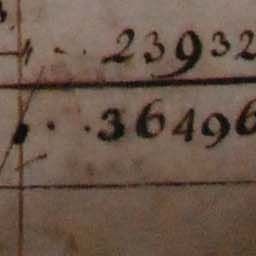 23932
36496